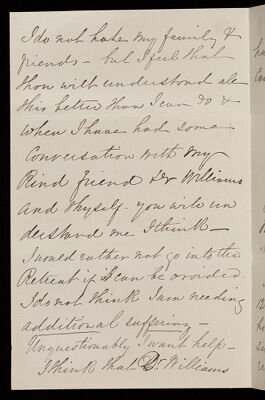 I do not hate my family &
friends – but I feel that
thou wilt understand all
this better than I can do &
when I have had some
Conversation with my
Kind friend Dr Williams
and thyself. you will un
derstand me I think –
I would rather not go into the
Retreat if it can be avoided.
I do not think I am needing
additional suffering –
Unquestionably I want help –
I think that Dr. Williams